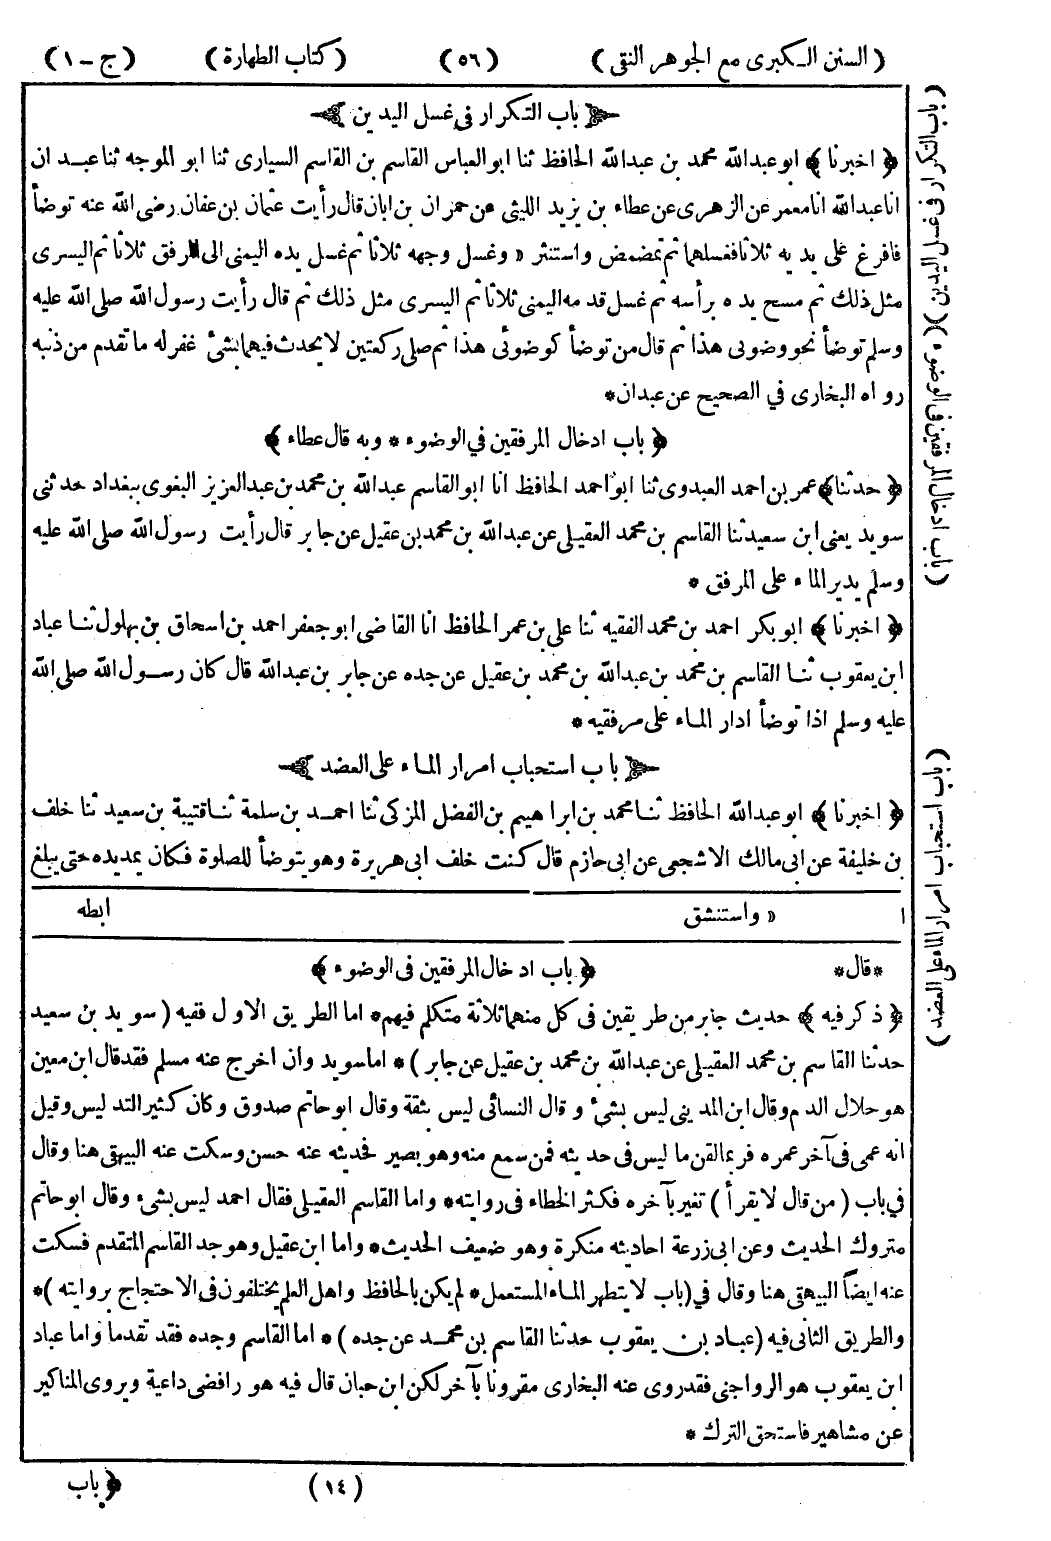 (السنن الكبرى مع الجوهر النقى) (٥٦) (كتاب الطهارة) (ج-١)
باب التكرار فى غسل اليدين
﴿اخبرنا﴾ ابو عبدالله محمد بن عبدالله الحافظ ثنا ابو العباس القاسم بن القاسم السيارى ثنا ابو الموجه ثنا عبدان
انا عبدالله انا معمر عن الزهرى عن عطاء بن يزيد الليثى عن حمران بن ابان قال رأيت عثمان بن عفان رضى الله عنه توضأ
فافرغ على يديه ثلاثا فغسلهما ثم تمضمض واستنثر « وغسل وجهه ثلاثا ثم غسل يده اليمنى الى المرفق ثلاثا ثم اليسرى
مثل ذلك ثم مسح يده برأسه ثم غسل قدمه اليمنى ثلاثا ثم اليسرى مثل ذلك ثم قال رأيت رسول الله صلى الله عليه
وسلم توضأ نحو وضوئى هذا ثم قال من توضأ كوضوئى هذا ثم صلى ركعتين لا يحدث فيهما بشئ غفر له ما تقدم من ذنبه
رواه البخارى في الصحيح عن عبدان*
﴿باب ادخال المرفقين في الوضوء * وبه قال عطاء﴾
﴿حدثنا﴾ عمر بن احمد العبدوى ثنا ابو احمد الحافظ انا ابو القاسم عبدالله بن محمد بن عبدالعزيز البغوى ببغداد حدثنى
سويد يعنى ابن سعيد ثنا القاسم بن محمد العقيلى عن عبدالله بن محمد بن عقيل عن جابر قال رأيت رسول الله صلى الله عليه
وسلم يدير الماء على المرفق *
﴿اخبرنا﴾ ابو بكر احمد بن محمد الفقيه ثنا على بن عمر الحافظ انا القاضى ابو جعفر احمد بن اسحاق بن بهلول ثنا عباد
ابن يعقوب ثنا القاسم بن محمد بن عبدالله بن محمد بن عقيل عن جده عن جابر بن عبدالله قال كان رسول الله صلى الله
عليه وسلم اذا توضأ ادار الماء على مرفقيه *
باب استحباب امرار الماء على العضد
﴿اخبرنا﴾ ابو عبدالله الحافظ ثنا محمد بن ابراهيم بن الفضل المزكى ثنا احمد بن سلمة ثنا قتيبة بن سعيد ثنا خلف
بن خليفة عن ابى مالك الاشجعى عن ابى حازم قال كنت خلف ابى هريرة وهو يتوضأ للصلوة فكان يمد يده حتى يبلغ
١ « واستنشق ابطه
*قال* ﴿باب ادخال المرفقين فى الوضوء﴾
﴿ذكر فيه﴾ حديث جابر من طريقين فى كل منهما ثلاثة متكلم فيهم* اما الطريق الاول ففيه (سويد بن سعيد
حدثنا القاسم بن محمد العقيلى عن عبدالله بن محمد بن عقيل عن جابر)* اما سويد وان اخرج عنه مسلم فقد قال ابن معين
هو حلال الدم وقال ابن المدينى ليس بشئ وقال النسائى ليس بثقة وقال ابو حاتم صدوق وكان كثير التدليس وقيل
انه عمى فى آخر عمره فربما لقن ما ليس فى حديثه فمن سمع منه وهو بصير فحديثه عنه حسن وسكت عنه البيهقى هنا وقال
في باب (من قال لا يقرأ) تغير بآخره فكثر الخطاء فى روايته* واما القاسم العقيلى فقال احمد ليس بشىء وقال ابو حاتم
متروك الحديث وعن ابى زرعة احاديثه منكرة وهو ضعيف الحديث* واما ابن عقيل وهو جد القاسم المتقدم فسكت
عنه ايضاً البيهقى هنا وقال في (باب لا يتطهر الماء المستعمل* لم يكن بالحافظ واهل العلم يختلفون فى الاحتجاج بروايته)*
والطريق الثانى فيه (عباد بن يعقوب حدثنا القاسم بن محمد عن جده)* اما القاسم وجده فقد تقدما واما عباد
ابن يعقوب هو الرواجنى فقد روى عنه البخارى مقرونا بآخر لكن ابن حبان قال فيه هو رافضى داعية ويروى المناكير
عن مشاهير فاستحق الترك *
(١٤) ﴿باب
(باب التكرار فى غسل اليدين)(باب ادخال المرفقين فى الوضوء)
(باب استحباب امرار الماء على العضد)